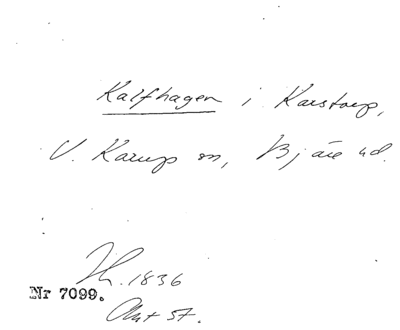 Kalfhagen i Karstorp,
V. Karup sn, Bjäre hd.
Th. 1836
Nr 7099.
Akt 57.